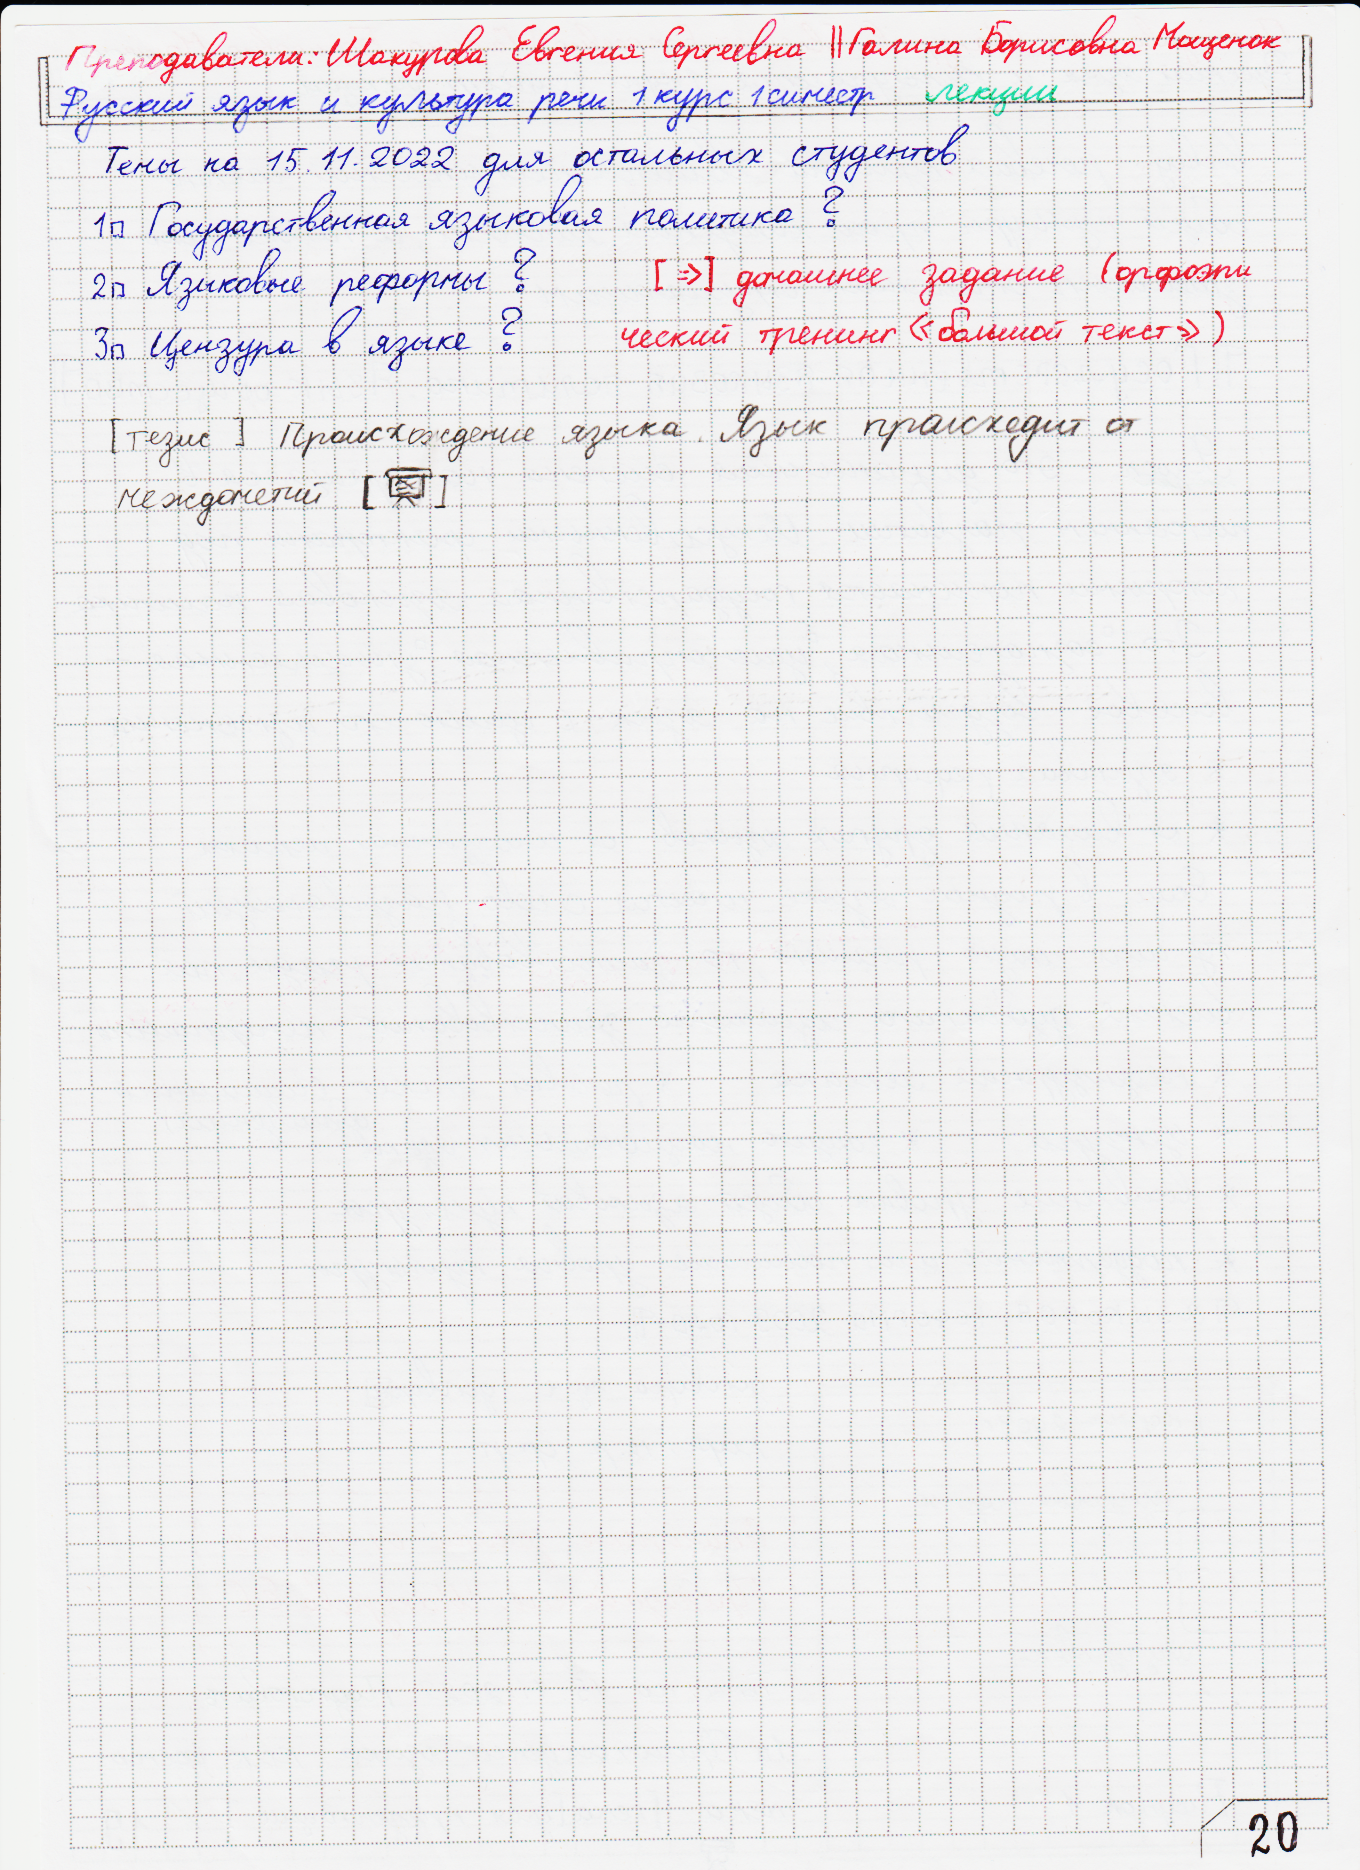 Преподаватели: Шакурова Евгения Сергеевна || Галина Борисовна Мащенок
Русский язык и культура речи 1 курс 1 симестр лекции
Темы на 15.11.2022 для остальных студентов
1п Государственная языковая политика ?
2п Языковые реформы ? [⇒] домашнее задание (орфоэпи
3п Цензура в языке ? ческий тренинг «большой текст»)
[тезис] Происхождение языка. Язык происходит от
междометий [ ]
20